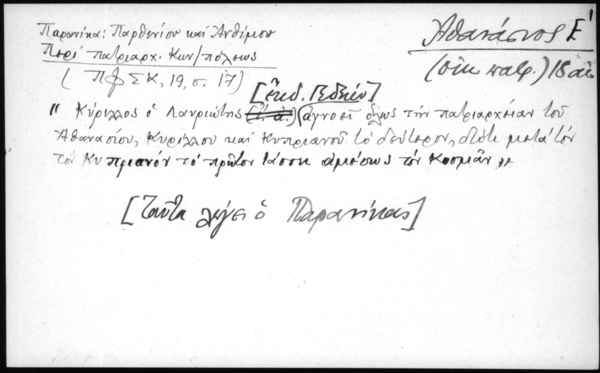 Παρανίκα: Παρθενίου καὶ Ἀνθίμου
Περὶ πατριαρχ. Κων/πόλεως
(ΠΦΣΚ, 19, σ. 17)
Ἀθανάσιος Ε΄
(οἰκ. πατρ.) 18 αἰ.
[ἔκδ. Γεδεών]
"Κύριλλος ὁ Λαυριώτης (ἀγνοεῖ ὅλως τὴν πατριαρχείαν τοῦ
Ἀθανασίου, Κυρίλλου καὶ Κυπριανοῦ τὸ δεύτερον, διότι μετὰ τὸν
τὸν Κυπριανὸν τὸ πρῶτον θάσσει ἀμέσως τὸν Κοσμᾶν"
[ταῦτα λέγει ὁ Παρανίκας]